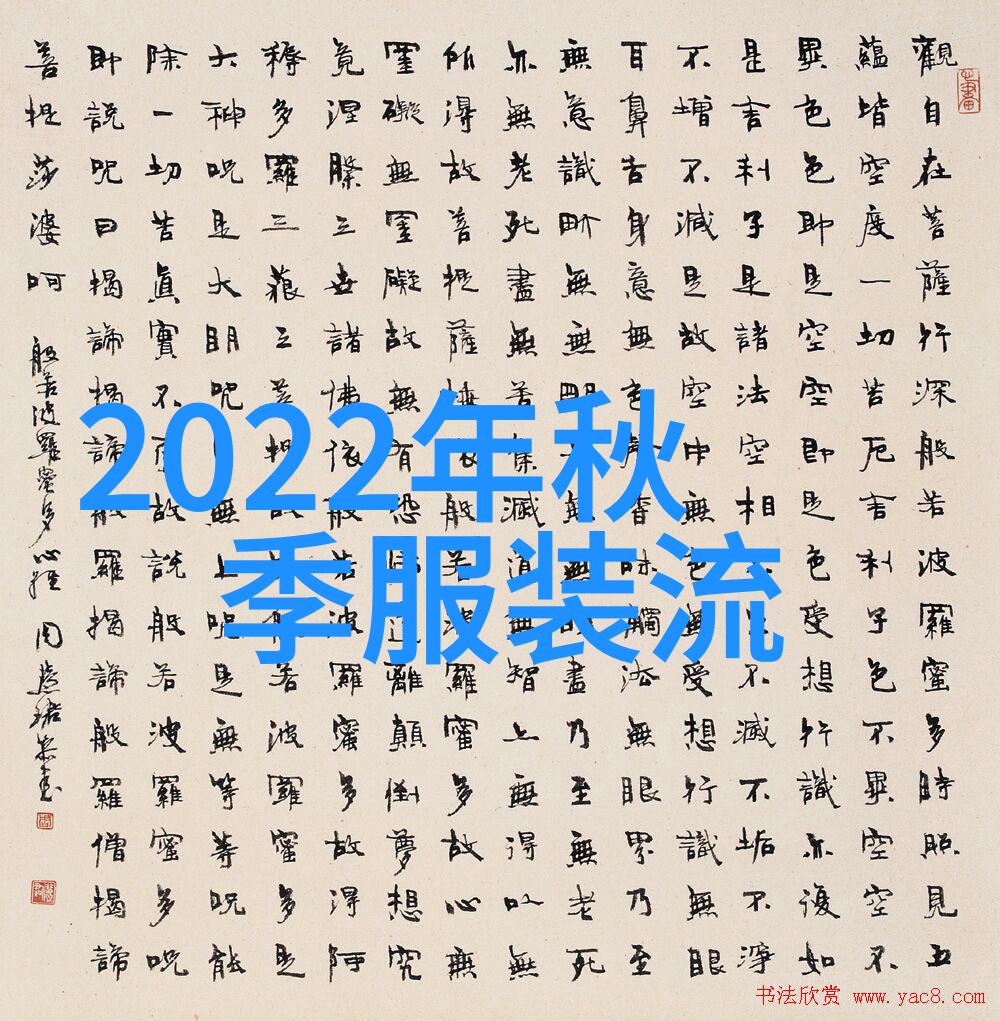 觀自在菩薩行深般若波羅蜜多時照見五
蘊皆空度一切苦厄舍利子色不異空空不
異色色即是空空即是色受想行識亦復如
是舍利子是諸法空相不生不滅不垢不淨
不增不減是故空中無色無受想行識無眼
耳鼻舌身意無色聲香味觸法無眼界乃至
無意識界無無明亦無無明盡乃至無老死
亦無老死盡無苦集滅道無智亦無得以無
所得故菩提薩埵依般若波羅蜜多故心無
罣礙無罣礙故無有恐怖遠離顛倒夢想究
竟涅槃三世諸佛依般若波羅蜜多故得阿
耨多羅三藐三菩提故知般若波羅蜜多是
大神咒是大明咒是無上咒是無等等咒能
除一切苦真實不虛故說般若波羅蜜多咒
即說咒曰揭諦揭諦般羅揭諦般羅僧揭諦
菩提莎婆呵
般若波羅蜜多心經 周慧珺恭書
2022年秋
季服装流
书法欣赏 www.yac8.com